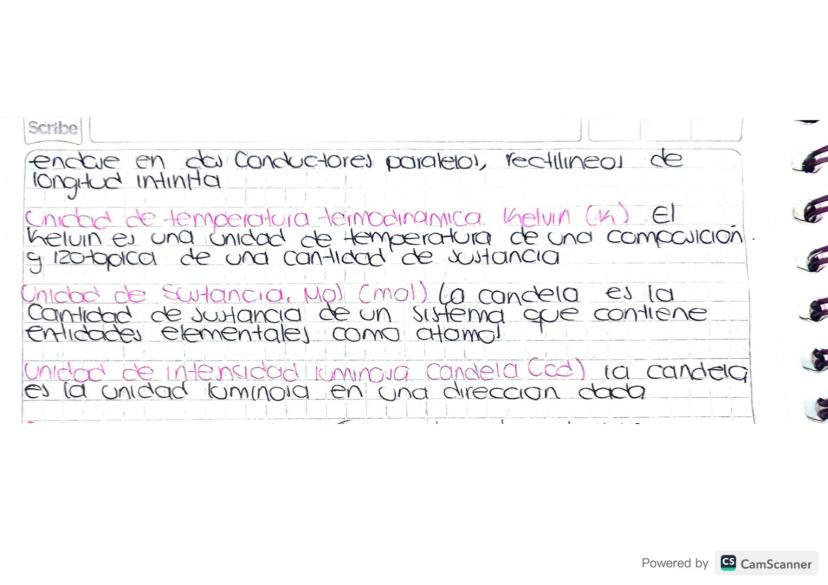 Scribe
enclave en dos conductores paralelos, rectilineos de
longitud infinita
Unidad de temperatura termodinamica. Kelvin (K) El
Kelvin es una unidad de temperatura de una composicion
y izotopica de una cantidad de sustancia
Unidad de Sustancia, Mol (mol) La candela es la
Cantidad de sustancia de un sistema que contiene
entidades elementales como atomos
Unidad de intensidad luminosa Candela (cd) la candela
es la unidad luminosa en una direccion dada
Powered by CS CamScanner